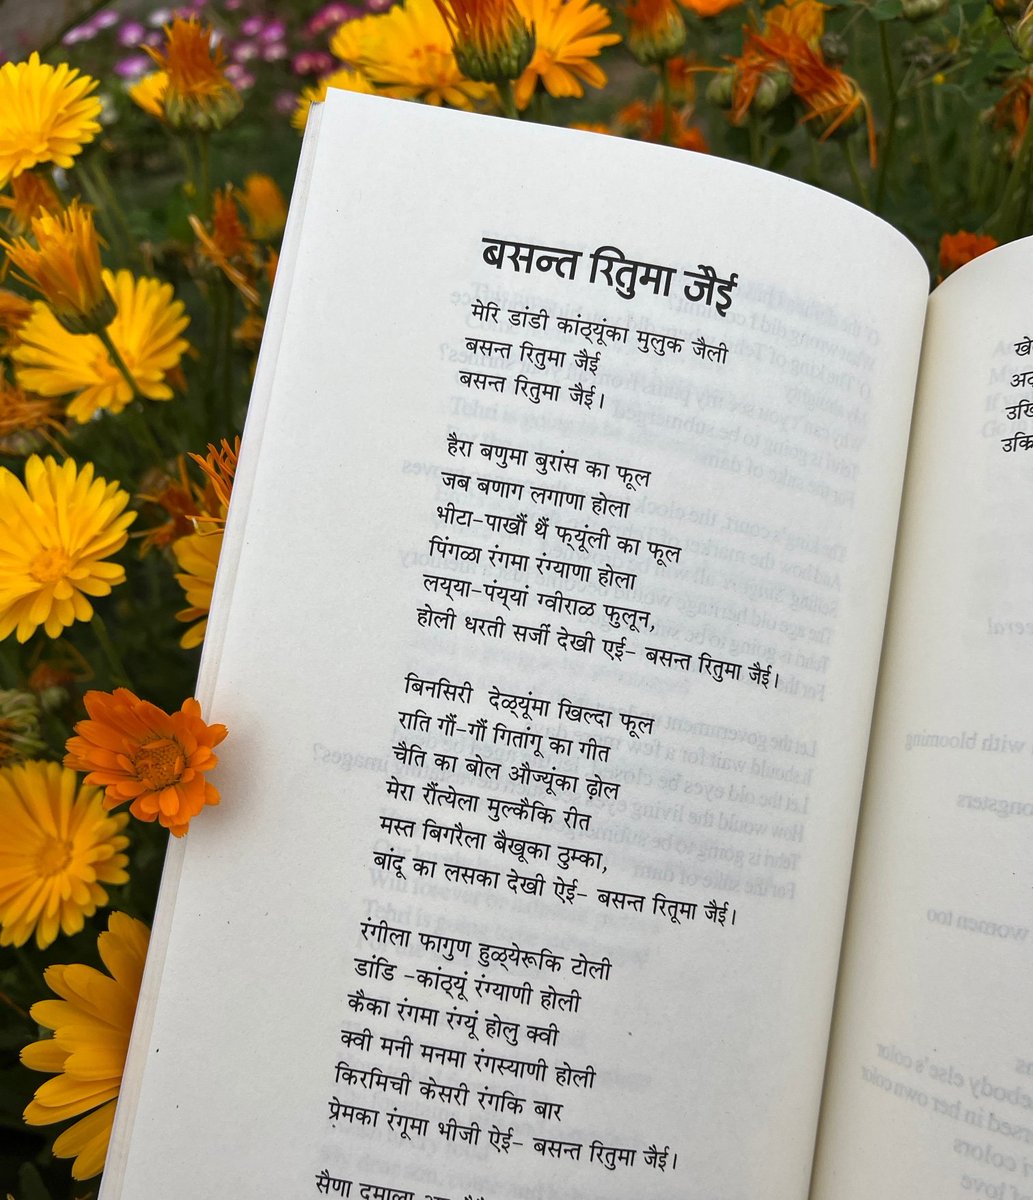 बसन्त रितुमा जैई
मेरि डांडी कांठ्यूंका मुलुक जैली
बसन्त रितुमा जैई
बसन्त रितुमा जैई।
हैरा बणुमा बुरांस का फूल
जब बणाग लगाणा होला
भीटा-पाखौं थैं फ्यूंली का फूल
पिंगळा रंगमा रंग्याणा होला
लय्या-पंय्यां ग्वीराळ फुलून,
होली धरती सजीं देखी एई- बसन्त रितुमा जैई।
बिनसिरी देळ्यूंमा खिल्दा फूल
राति गौं-गौं गितांगू का गीत
चैति का बोल औज्यूंका ढ़ोल
मेरा रौंत्येला मुल्कैकि रीत
मस्त बिगरैला बैखूका ठुम्का,
बांदू का लसका देखी ऐई- बसन्त रितूमा जैई।
रंगीला फागुण हुळ्येरूकि टोली
डांडि -कांठ्यूं रंग्याणी होली
कैका रंगमा रंग्यूं होलु क्वी
क्वी मनी मनमा रंगस्याणी होली
किरमिची केसरी रंगकि बार
प्रेमका रंगूमा भीजी ऐई- बसन्त रितुमा जैई।
सैणा दमाला